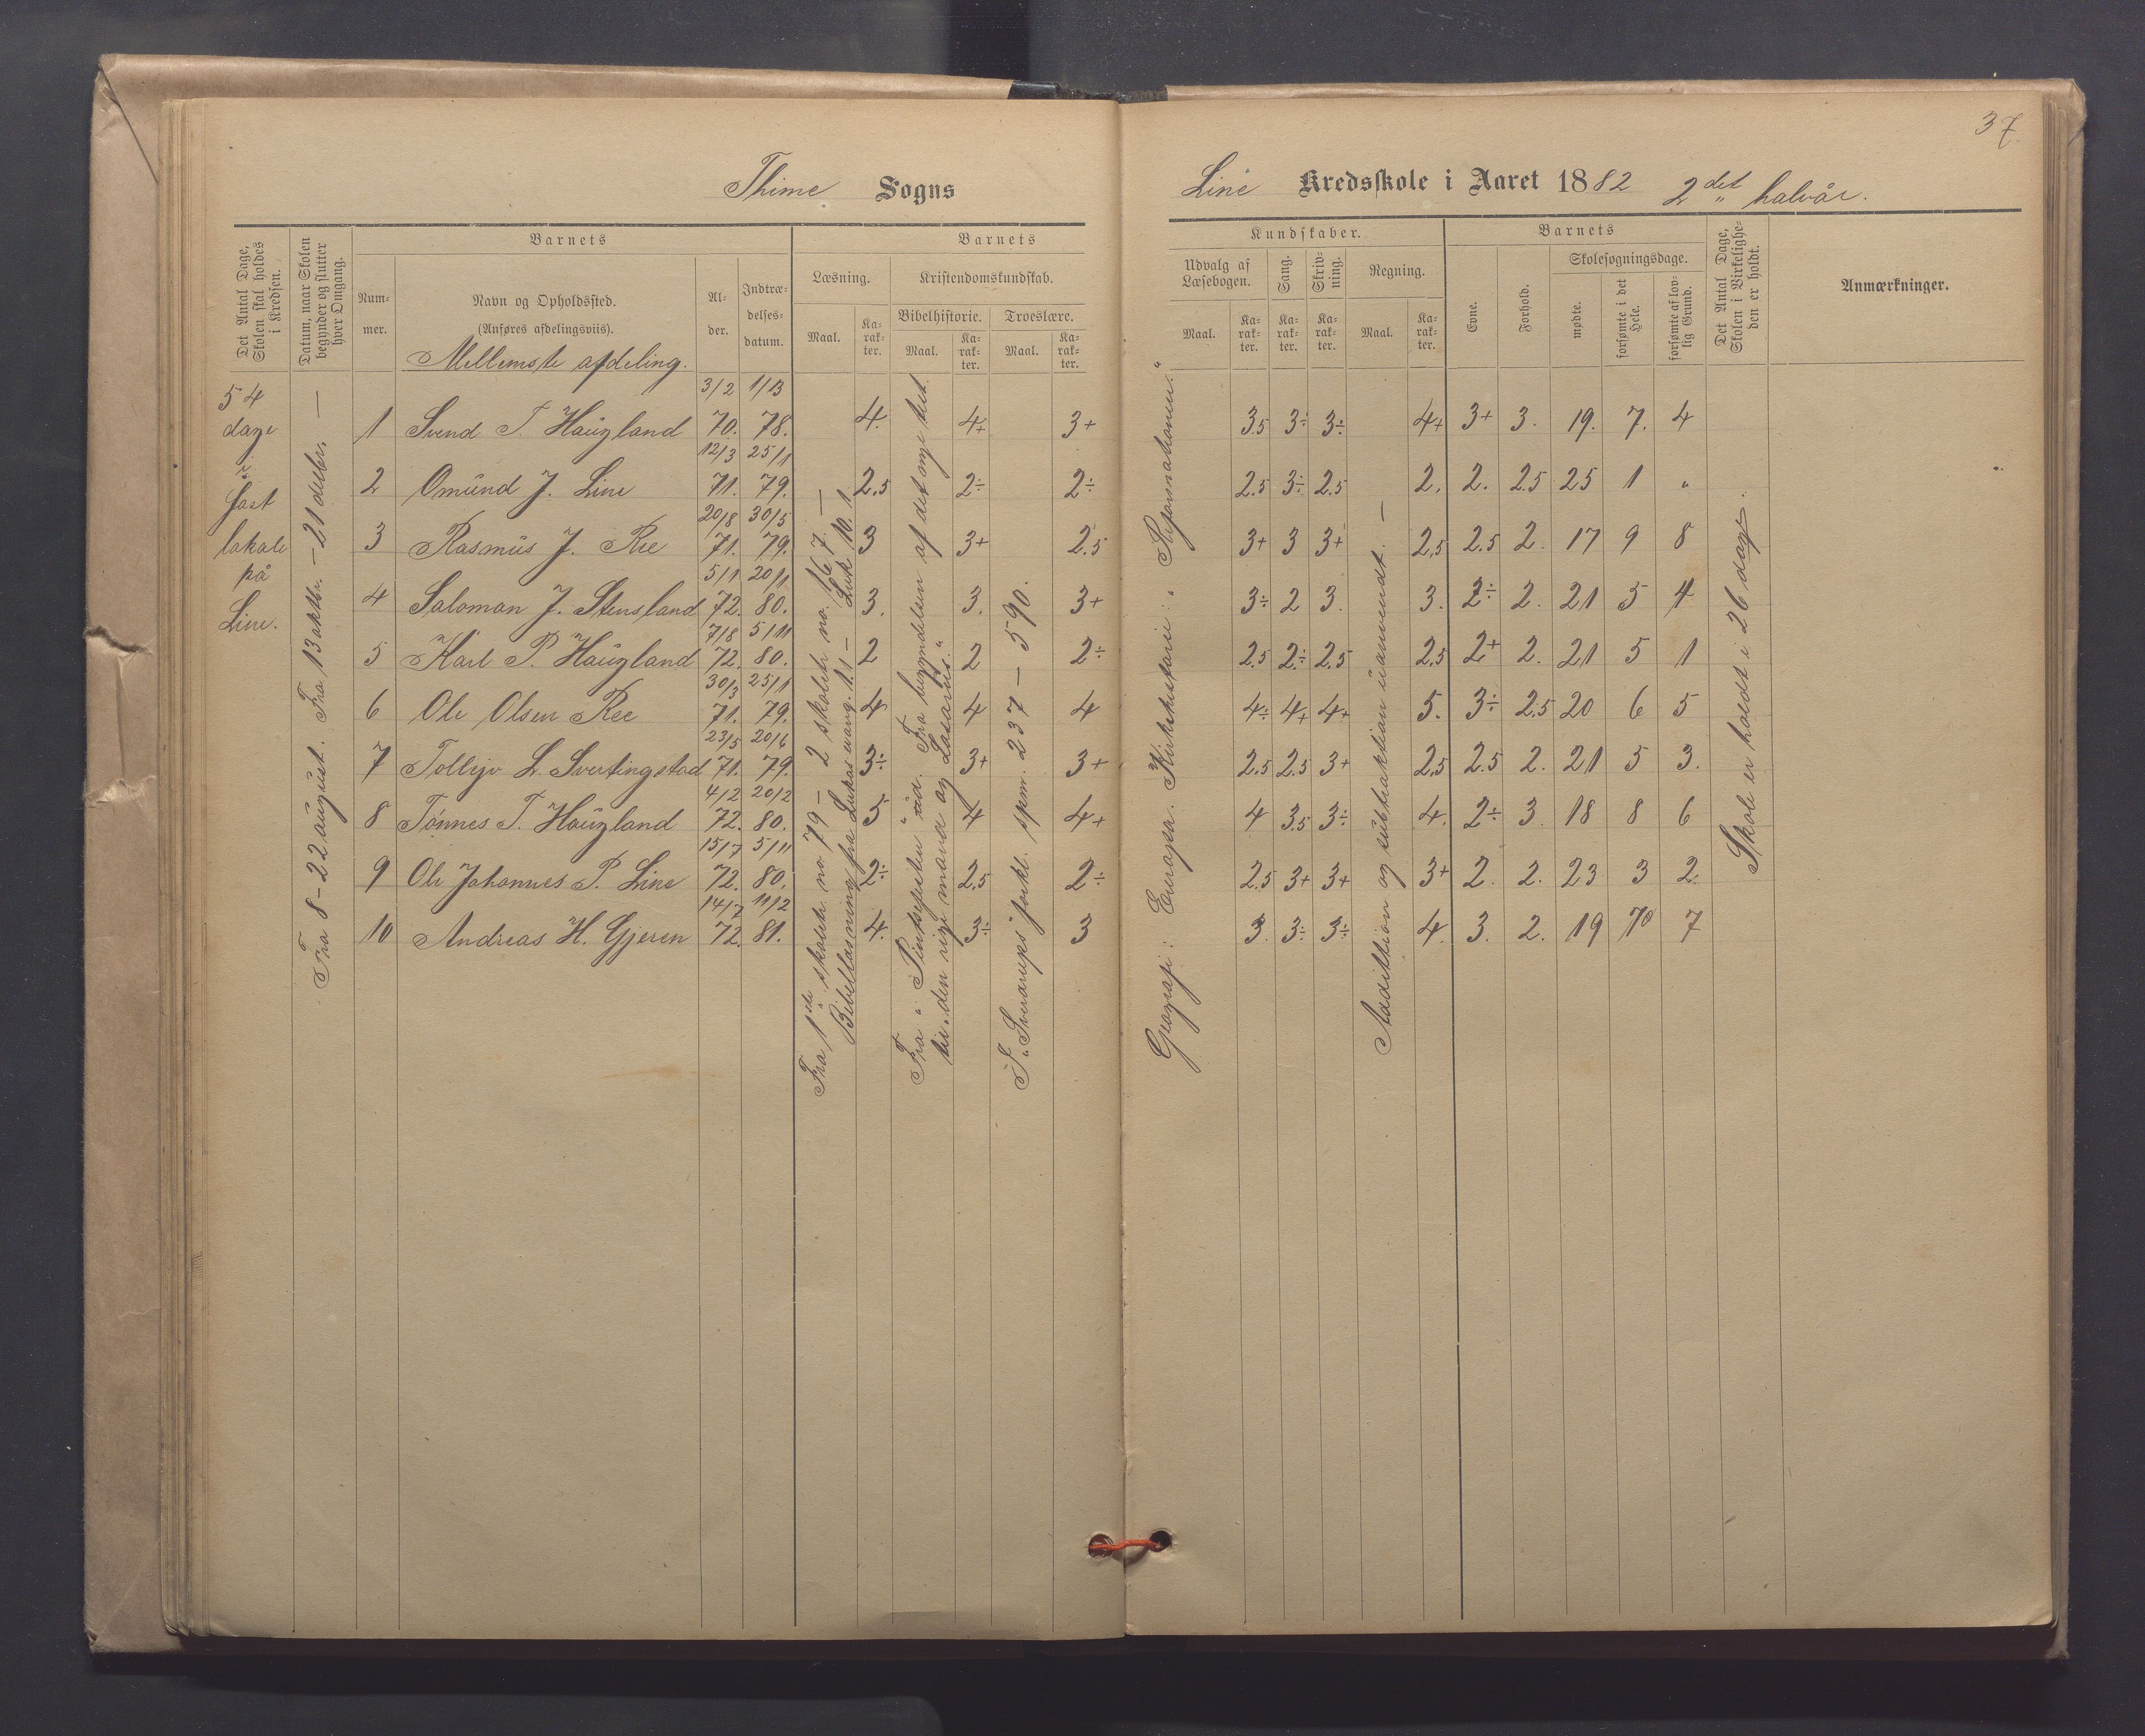 37
Thime Sogns
Line Kredsskole i Aaret 1882 2det halvår.
Det Antal Dage, Skolen skal holdes i Kredsen.
Datum, naar Skolen begynder og slutter hver Omgang.
Barnets
Num-mer.
Navn og Opholdssted.
(Anføres afdelingsviis).
Mellemste afdeling.
Al-der.
Indtræ-delses-datum.
Barnets
Læsning.
Maal.
Ka-rak-ter.
Kristendomskundskab.
Bibelhistorie.
Maal.
Ka-rak-ter.
Troeslære.
Maal.
Ka-rak-ter.
Kundskaber.
Udvalg af Læsebogen.
Maal.
Ka-rak-ter.
Sang.
Ka-rak-ter.
Skriv-ning.
Ka-rak-ter.
Regning.
Maal.
Ka-rak-ter.
Barnets
Evne.
Forhold.
Skolesøgningsdage.
mødte.
forsømte i det Hele.
forsømte af lov-lig Grund.
Det Antal Dage, Skolen i Virkelighe-den er holdt.
Anmærkninger.
54
dage
i
fast
lokale
på
Line.
Fra 8 - 22 august. Fra 13 oktbr. - 21 debr. —
3/2 1/13
1 Svend T. Haugland 70. 78. 4. 4+ 3+ 3.5 3÷ 3÷ 4+ 3+ 3. 19. 7. 4
12/3 25/11
2 Omund J. Line 71. 79. 2.5 2÷ 2÷ 2.5 3÷ 2.5 2. 2. 2.5 25 1 "
20/8 30/5
3 Rasmus J. Ree 71. 79. 3 3+ 2.5 3+ 3 3+ 2,5 2.5 2. 17 9 8
5/1 20/11
4 Saloman J. Stensland 72. 80. 3. 3. 3+ 3÷ 2 3. 3. 2÷ 2. 21 5 4
7/8 5/11
5 Karl P. Haugland 72. 80. 2 2 2÷ 2.5 2÷ 2.5 2,5 2+ 2. 21 5 1
30/3 25/11
6 Ole Olsen Ree 71. 79. 4 4 4 4÷ 4+ 4+ 5. 3÷ 2.5 20 6 5
23/5 20/6
7 Tollejv L. Svertingstad 71. 79. 3÷ 3+ 3+ 2.5 2.5 3+ 2,5 2.5 2. 21 5 3.
4/2 20/2
8 Tönnes T. Haugland 72. 80. 5 4 4+ 4 3.5 3÷ 4. 2÷ 3. 18 8 6
15/7 5/11
9 Ole Johannes P. Line 72. 80. 2÷ 2.5 2÷ 2.5 3+ 3+ 3+ 2. 2. 23 3 2.
14/7 11/2
10 Andreas H. Gjeren 72. 81. 4. 3÷ 3 3. 3÷ 3÷ 4. 3. 2. 19 7/0 7
Fra 1ste skoletr. no. 79 - 2 skoletr. no. 167. —
Bibellæsning fra Lukas evang. 1.1 - Luk 10.1.
Fra "Pintsefesten" ud. Fra begyndelsen af det nye test.
til "den rige mand og Lasarus."
I "Sverdrups" forkl. spm. 237 - 590.
Geografi: Europa. Kirkehistorie: "Reformationen."
Addition og subtraktion uanvendt. —
Skole er holdt i 26 dage.